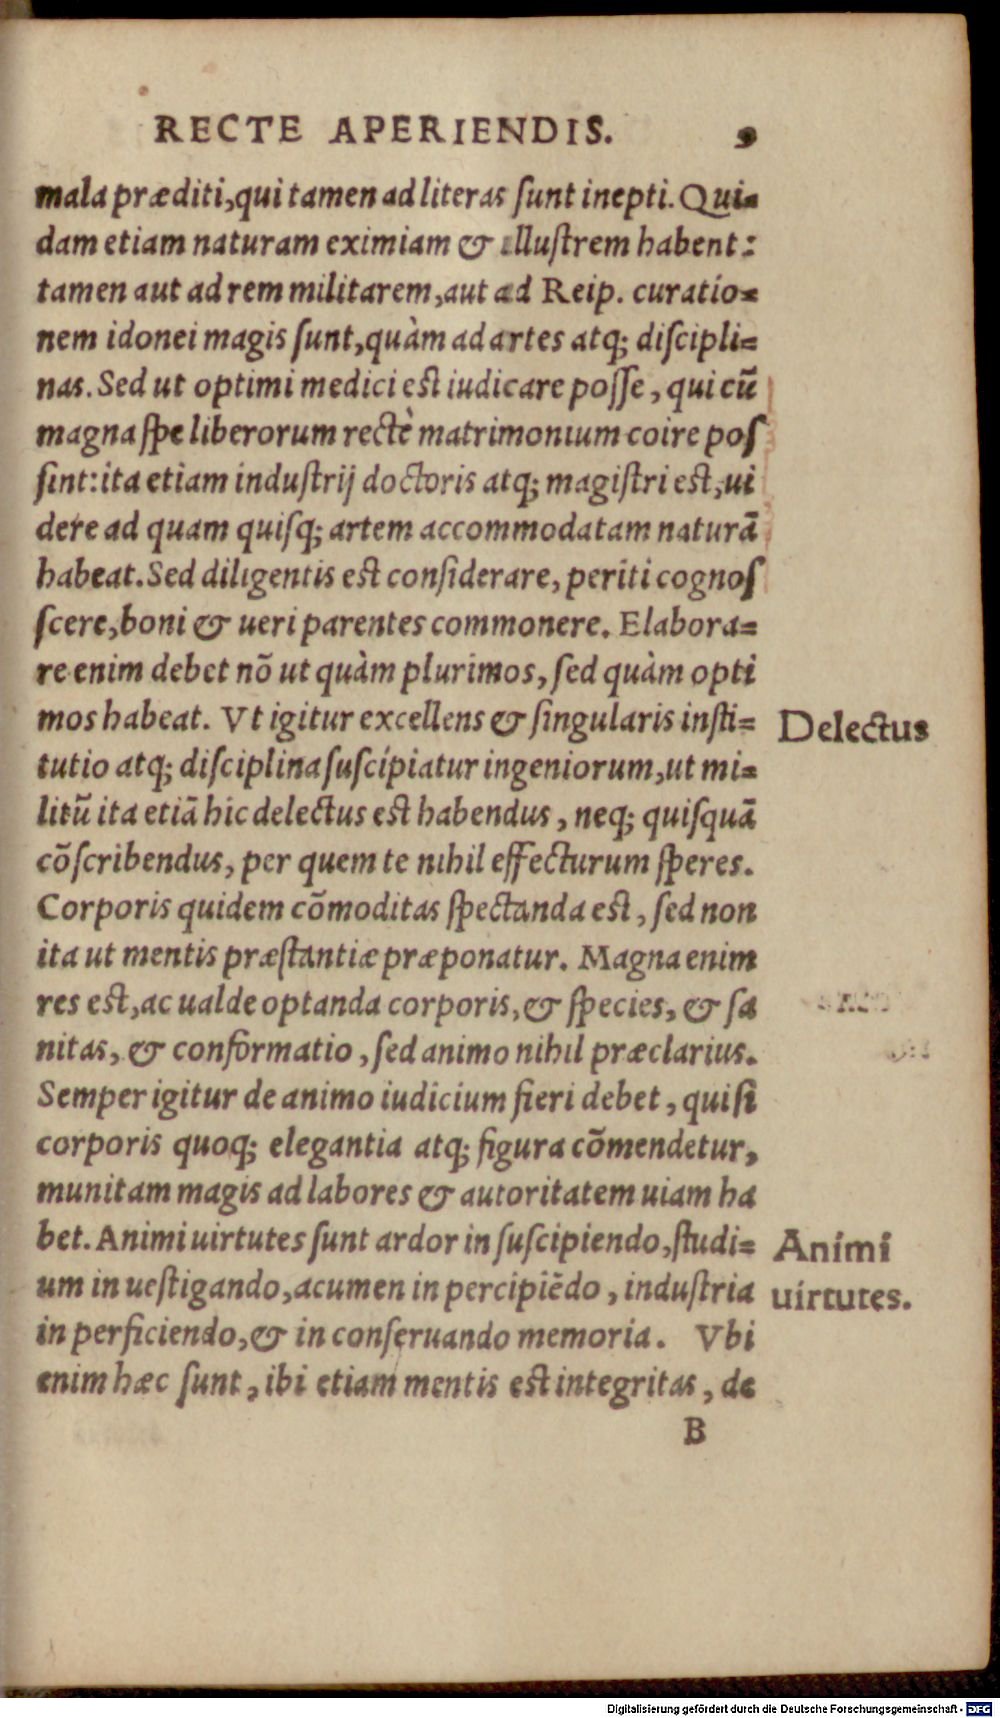 RECTE APERIENDIS. 9
mala præditi, qui tamen ad literas ſunt inepti. Qui-
dam etiam naturam eximiam & illuſtrem habent:
tamen aut ad rem militarem, aut ad Reip. curatio-
nem idonei magis ſunt, quàm ad artes atq; diſcipli-
nas. Sed ut optimi medici eſt iudicare poſſe, qui cū
magna ſpe liberorum rectè matrimonium coire poſ
ſint: ita etiam induſtrij doctoris atq; magiſtri eſt, ui
dere ad quam quiſq; artem accommodatam naturã
habeat. Sed diligentis eſt conſiderare, periti cognoſ
ſcere, boni & ueri parentes commonere. Elabora-
re enim debet nõ ut quàm plurimos, ſed quàm opti
mos habeat. Vt igitur excellens & ſingularis inſti-
Delectus
tutio atq; diſciplina ſuſcipiatur ingeniorum, ut mi-
litū ita etiã hic delectus eſt habendus, neq; quiſquã
cõſcribendus, per quem te nihil effecturum ſperes.
Corporis quidem cõmoditas ſpectanda eſt, ſed non
ita ut mentis præſtantiæ præponatur. Magna enim
res eſt, ac ualde optanda corporis, & ſpecies, & ſa
nitas, & conformatio, ſed animo nihil præclarius.
Semper igitur de animo iudicium fieri debet, qui ſi
corporis quoq; elegantia atq; figura cõmendetur,
munitam magis ad labores & autoritatem uiam ha
bet. Animi uirtutes ſunt ardor in ſuſcipiendo, ſtudi-
Animi
um in ueſtigando, acumen in percipiẽdo, induſtria
uirtutes.
in perficiendo, & in conſeruando memoria. Vbi
enim hæc ſunt, ibi etiam mentis eſt integritas, de
B
Digitalisierung gefördert durch die Deutsche Forschungsgemeinschaft - DFG